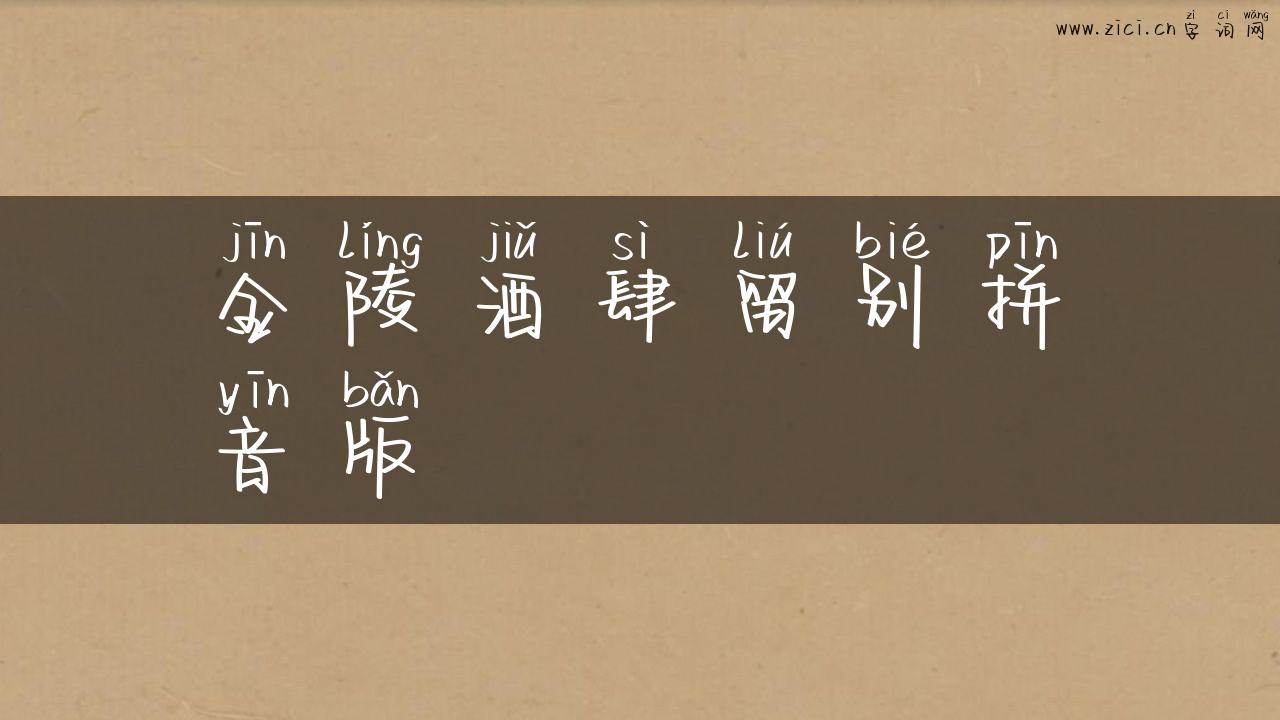 zì cí wǎng
www.zici.cn 字 词 网
jīn líng jiǔ sì liú bié pīn
金 陵 酒 肆 留 别 拼
yīn bǎn
音 版